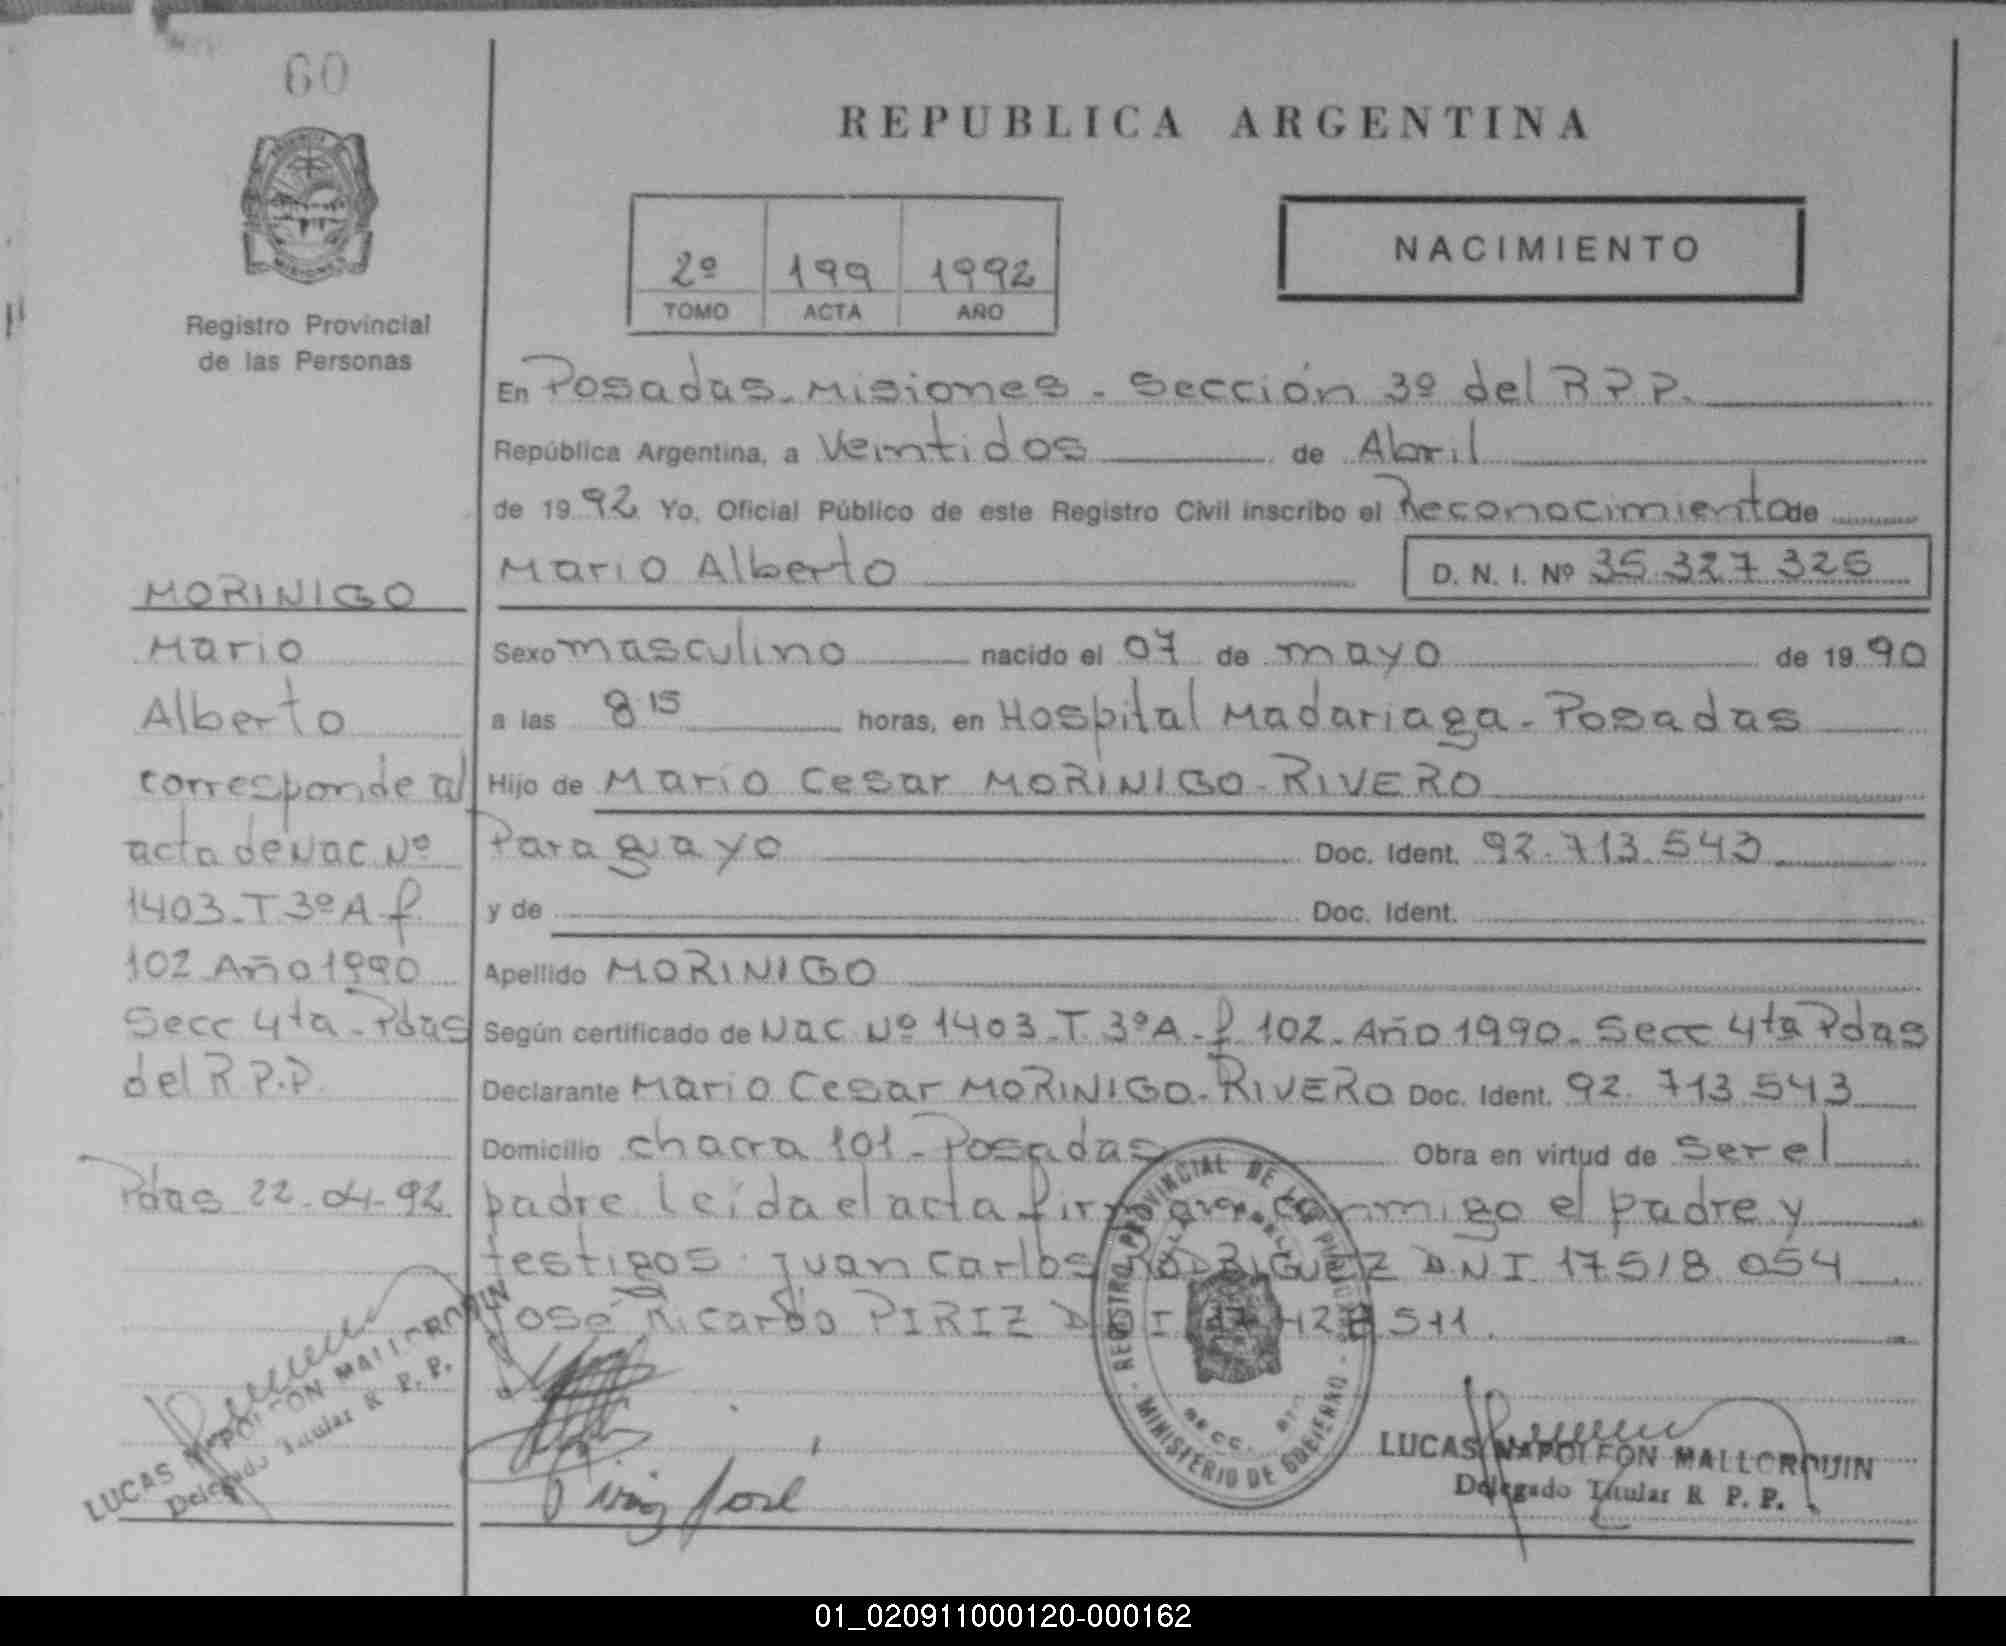 60
REPUBLICA ARGENTINA
2º 199 1992
TOMO ACTA AÑO
NACIMIENTO
Registro Provincial
de las Personas
En Posadas - Misiones - Sección 3º del R P P.
República Argentina, a Veintidos de Abril
de 1992 Yo, Oficial Público de este Registro Civil inscribo el Reconocimiento de
Mario Alberto D. N. I. Nº 35.327.325
Sexo masculino nacido el 07 de mayo de 1990
a las 8 15 horas, en Hospital Madariaga - Posadas
Hijo de Mario Cesar MORINIGO - RIVERO
Paraguayo Doc. Ident. 92.713.543
y de Doc. Ident.
Apellido MORINIGO
Según certificado de Nac Nº 1403 - T. 3º A - f 102 - Año 1990 - Secc 4ta Pdas
Declarante Mario Cesar MORINIGO - RIVERO Doc. Ident. 92.713.543
Domicilio chacra 101 - Posadas Obra en virtud de ser el
padre leída el acta firman conmigo el padre y
testigos Juan Carlos RODRIGUEZ D.N.I 17.518.054
José Ricardo PIRIZ 511.
MORINIGO
Mario
Alberto
corresponde al
acta de Nac Nº
1403 - T 3º A - f
102 Año 1990
Secc 4ta - Pdas
del R P.P.
Pdas 22-04-92
LUCAS NAPOLEON MALLORQUIN
Delegado Titular R. P. P.
REGISTRO PROVINCIAL DE LAS PERSONAS
MINISTERIO DE GOBIERNO
Piriz José
LUCAS NAPOLEON MALLORQUIN
Delegado Titular R. P. P.
01_020911000120-000162